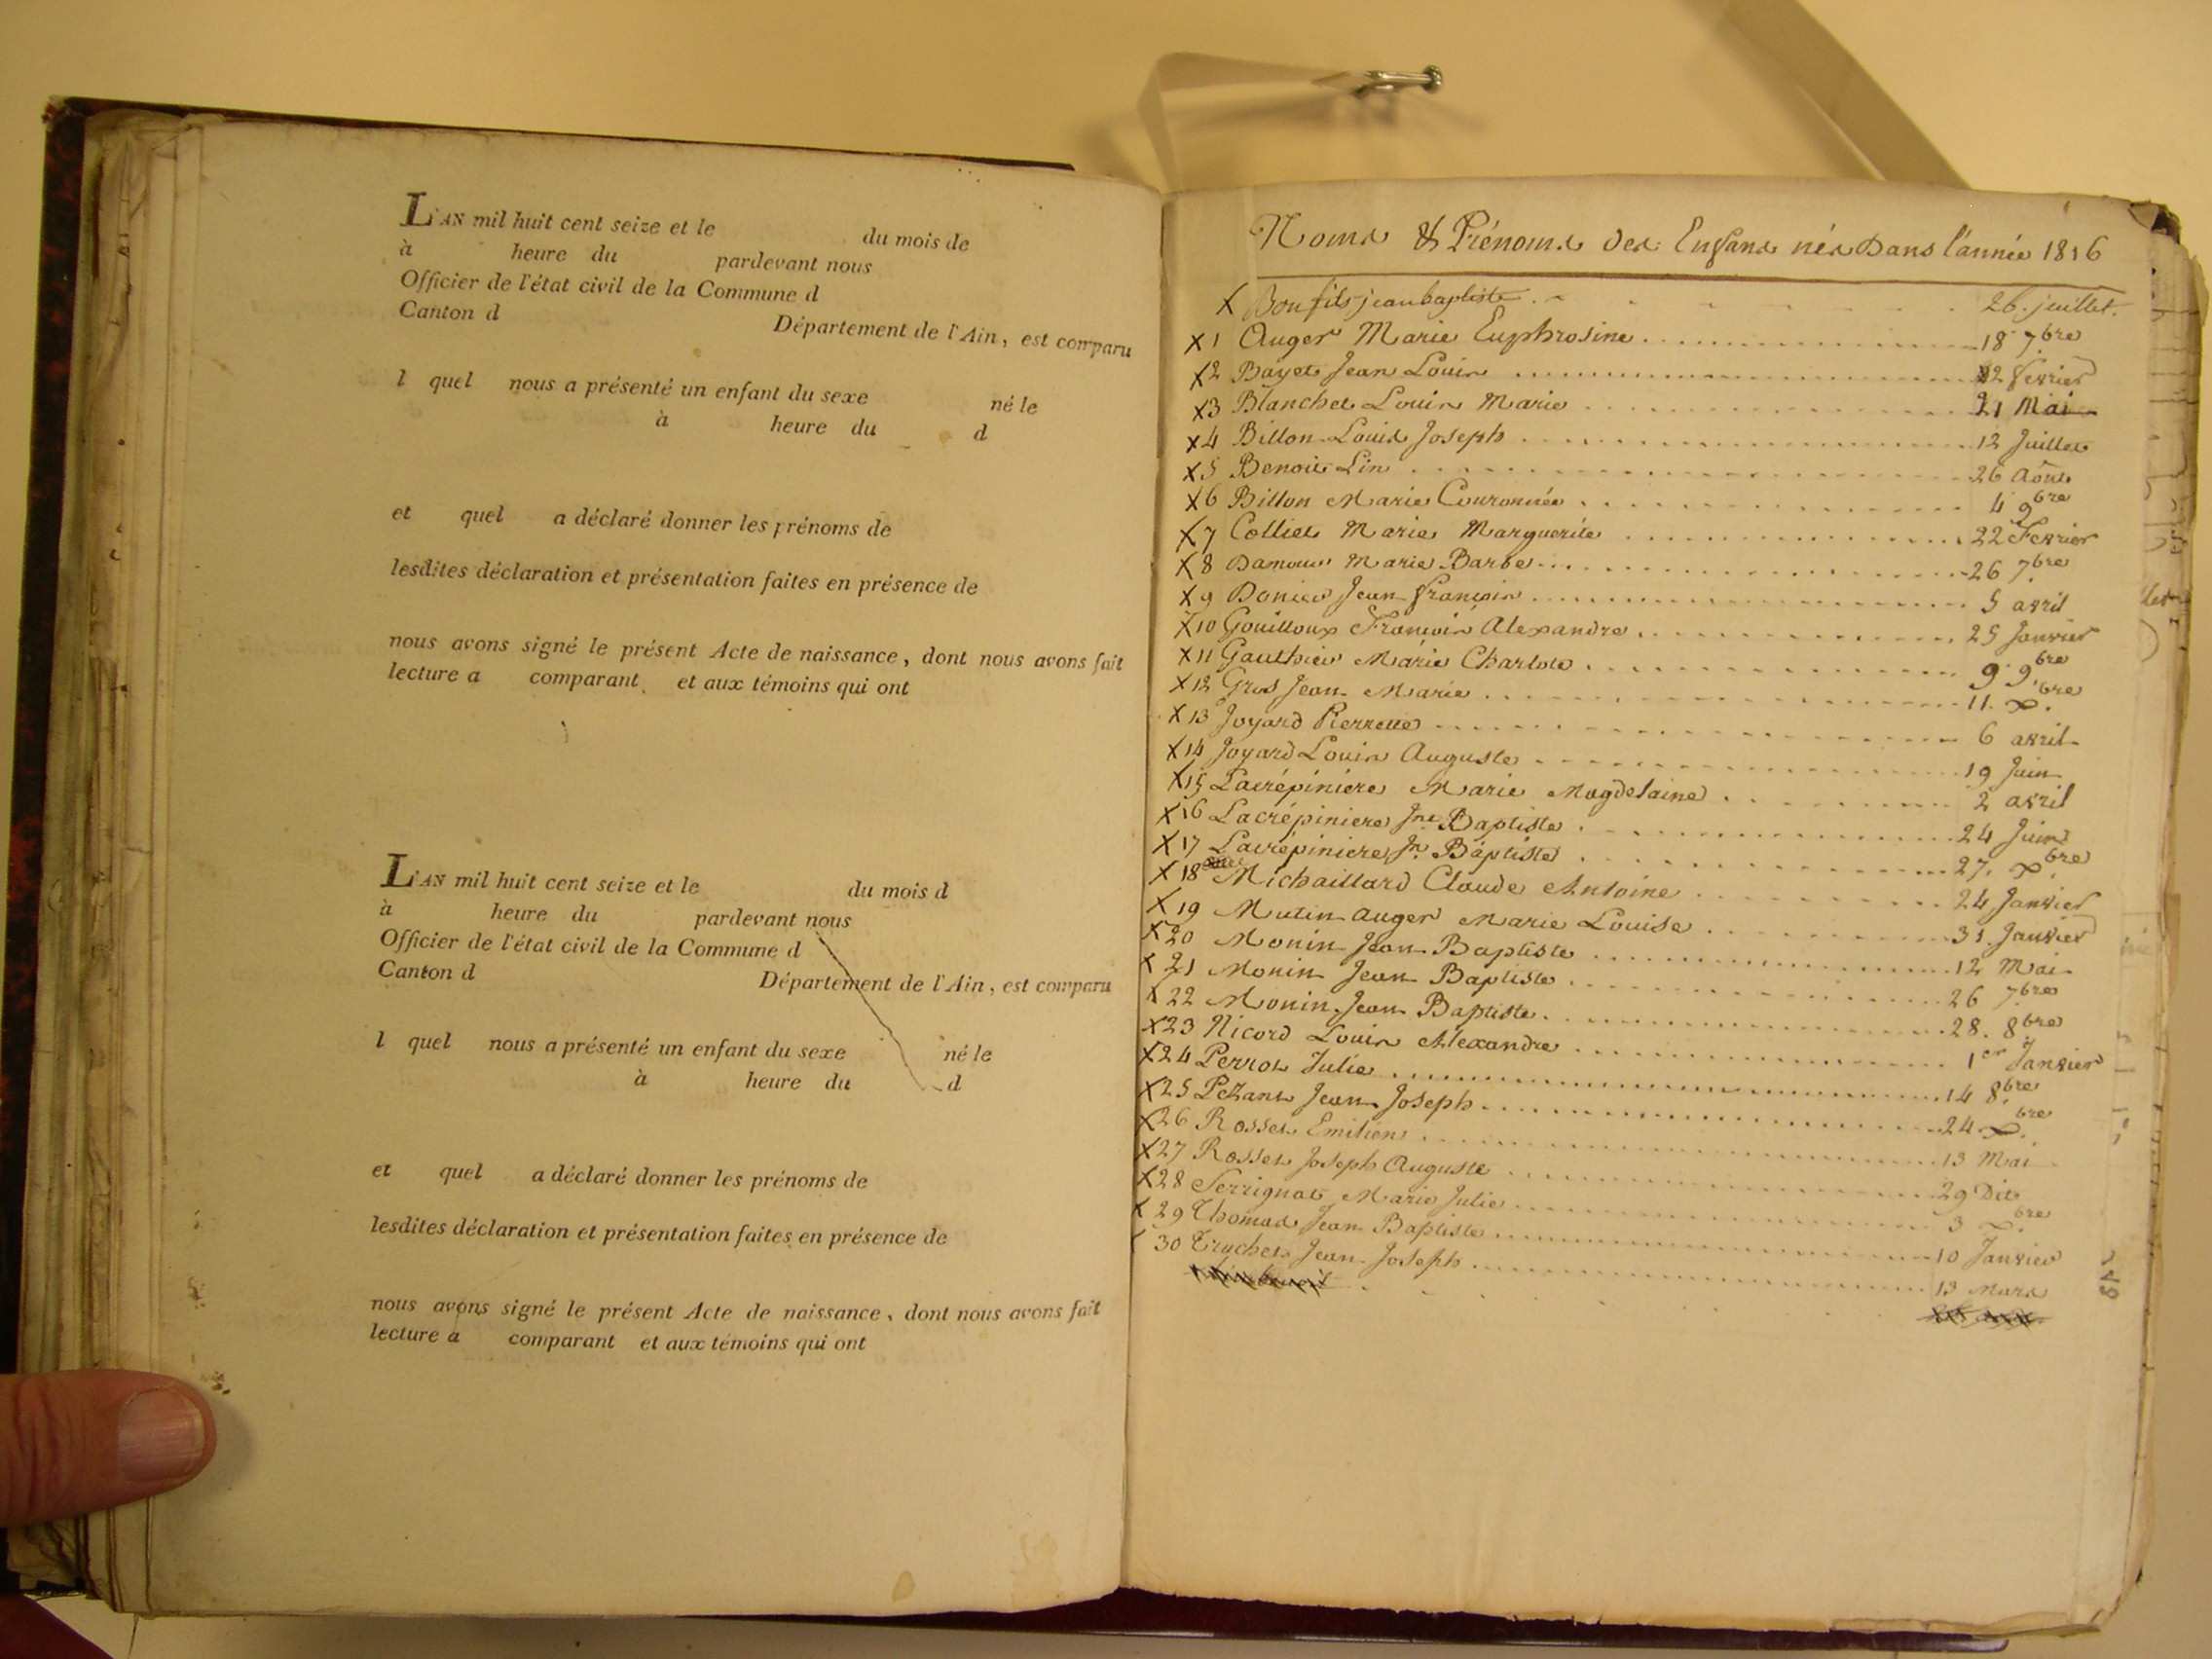 L'AN mil huit cent seize et le du mois de
à heure du pardevant nous
Officier de l'état civil de la Commune d
Canton d Département de l'Ain, est comparu
l quel nous a présenté un enfant du sexe né le
à heure du d
et quel a déclaré donner les prénoms de
lesdites déclaration et présentation faites en présence de
nous avons signé le présent Acte de naissance, dont nous avons fait
lecture a comparant et aux témoins qui ont
L'AN mil huit cent seize et le du mois d
à heure du pardevant nous
Officier de l'état civil de la Commune d
Canton d Département de l'Ain, est comparu
l quel nous a présenté un enfant du sexe né le
à heure du d
et quel a déclaré donner les prénoms de
lesdites déclaration et présentation faites en présence de
nous avons signé le présent Acte de naissance, dont nous avons fait
lecture a comparant et aux témoins qui ont
Noms & Prénoms des Enfans nés Dans l'année 1816
X Bonfils jean baptiste 26. juillet.
X 1 Auger Marie Euphrosine 18 7bre
X 2 Bayet Jean Louis 12 fevrier
X 3 Blanchet Louis Marie 21 Mai
X 4 Billon Louis Joseph 12 Juillet
X 5 Benoit Lin 26 Août
X 6 Billon Marie Couronnée 4 9bre
X 7 Colliet Marie Marguerite 22 Fevrier
X 8 Damour Marie Barbe 26 7bre
X 9 Donier Jean François 5 avril
X 10 Gouilloux François Alexandre 25 Janvier
X 11 Gauthier Marie Charlote 9 9bre
X 12 Gros Jean Marie 11. Xbre
X 13 Joyard Pierrette 6 avril
X 14 Joyard Louis Auguste 19 Juin
X 15 Lacrépiniere Marie Magdelaine 2 avril
X 16 Lacrépiniere Jne Baptiste 24 Juin
X 17 Lacrépiniere Jn Baptiste 27. Xbre
X 18 Michaillard Claude Antoine 24 Janvier
X 19 Mutin auger Marie Louise 31. Janvier
X 20 Monin Jean Baptiste 12 Mai
X 21 Monin Jean Baptiste 26 7bre
X 22 Monin Jean Baptiste 28. 8bre
X 23 Nicord Louis Alexandre 1er Janvier
X 24 Perrot Julie 14 8bre
X 25 Pezant Jean Joseph 24 Xbre
X 26 Rosset Emilien 13 Mai
X 27 Rosset Joseph Auguste 29 Dit
X 28 Serrignat Marie Julie 3 Xbre
X 29 Thomas Jean Baptiste 10 Janvier
30 Truchet Jean Joseph 13 Mars